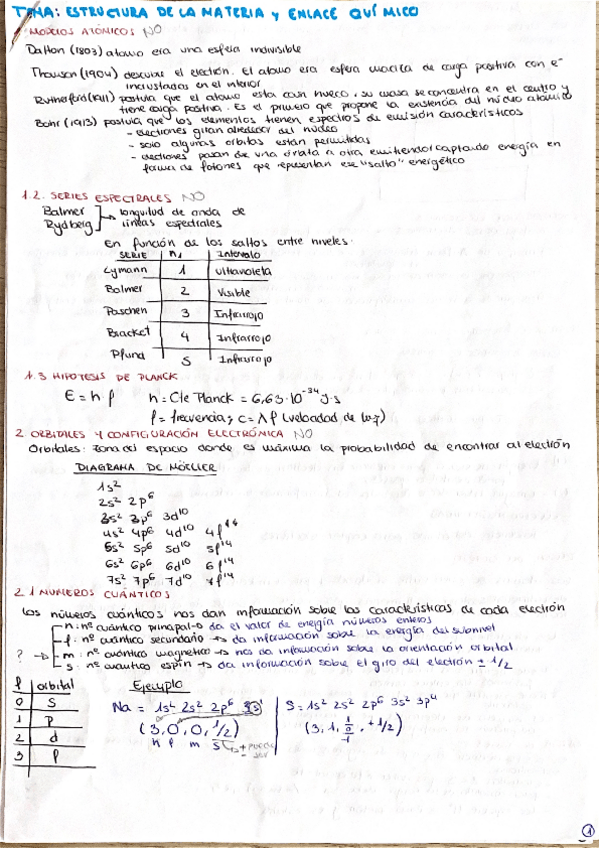 TEMA: ESTRUCTURA DE LA MATERIA y ENLACE QUÍMICO
MODELOS ATÓMICOS NO
Dalton (1803) átomo era una esfera indivisible
Thomson (1904) descubre el electrón. El átomo era esfera maciza de carga positiva con e⁻
incrustados en el interior
Rutherford (1911) postula que el átomo esta casi hueco, su masa se concentra en el centro y
tiene carga positiva. Es el primero que propone la existencia del núcleo atómico
Bohr (1913) postula que los elementos tienen espectros de emisión característicos
- electrones giran alrededor del núcleo
- solo algunas órbitas están permitidas
- electrones pasan de una órbita a otra emitiendo/captando energía en
forma de fotones que representan ese "salto" energético
1.2. SERIES ESPECTRALES NO
Balmer
Rydberg
longitud de onda de
líneas espectrales
En función de los saltos entre niveles:
SERIE n₁ Intervalo
Lymann 1 Ultravioleta
Balmer 2 Visible
Paschen 3 Infrarrojo
Bracket 4 Infrarrojo
Pfund 5 Infrarrojo
1.3 HIPOTESIS DE PLANCK
E = h·f h = Cte Planck = 6,63·10⁻³⁴ J·s
f = frecuencia; c = λf (velocidad de luz)
2. ORBITALES Y CONFIGURACIÓN ELECTRÓNICA NO
Orbitales: zona del espacio donde es máxima la probabilidad de encontrar al electrón
DIAGRAMA DE MÖELLER
1s²
2s² 2p⁶
3s² 3p⁶ 3d¹⁰
4s² 4p⁶ 4d¹⁰ 4f¹⁴
5s² 5p⁶ 5d¹⁰ 5f¹⁴
6s² 6p⁶ 6d¹⁰ 6f¹⁴
7s² 7p⁶ 7d¹⁰ 7f¹⁴
2.1 NUMEROS CUÁNTICOS
Los números cuánticos nos dan información sobre las características de cada electrón
n: nº cuántico principal → da el valor de energía números enteros
? → f: nº cuántico secundario → da información sobre la energía del subnivel
m: nº cuántico magnetico → nos da información sobre la orientación orbital
s: nº cuantico espín → da información sobre el giro del electrón ± 1/2
f orbital
0 s
1 p
2 d
3 f
Ejemplo
Na = 1s² 2s² 2p⁶ 3s¹
(3, 0, 0, 1/2)
n f m s
S = 1s² 2s² 2p⁶ 3s² 3p⁴
(3, 1, , +1/2)
1